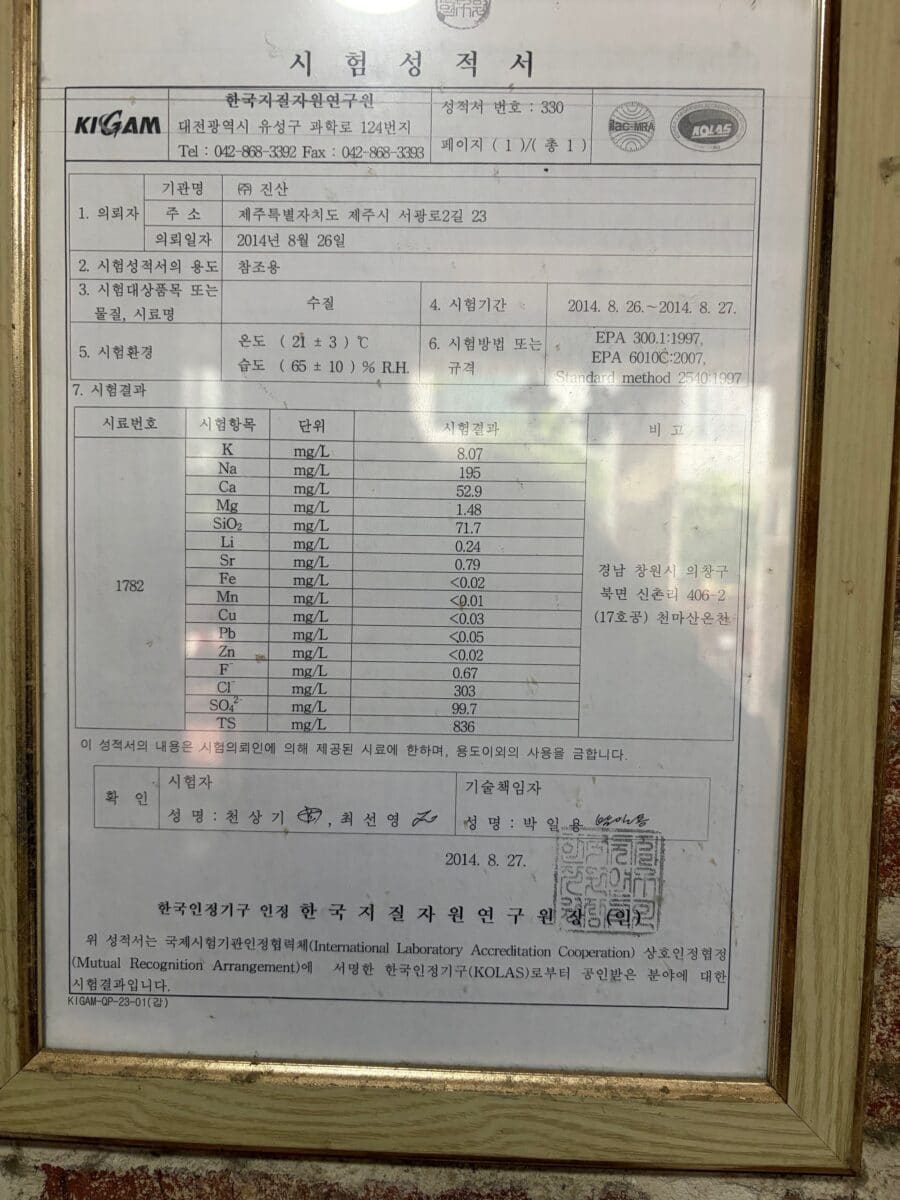 시 험 성 적 서
KIGAM
한국지질자원연구원
대전광역시 유성구 과학로 124번지
Tel : 042-868-3392 Fax : 042-868-3393
성적서 번호 : 330
페이지 ( 1 )/( 총 1 )
ilac-MRA
KOLAS
1. 의뢰자
기관명 ㈜ 진산
주 소 제주특별자치도 제주시 서광로2길 23
의뢰일자 2014년 8월 26일
2. 시험성적서의 용도 참조용
3. 시험대상품목 또는
물질, 시료명
수질
4. 시험기간
2014. 8. 26.~2014. 8. 27.
5. 시험환경
온도 ( 21 ± 3 ) ℃
습도 ( 65 ± 10 ) % R.H.
6. 시험방법 또는
규격
EPA 300.1:1997,
EPA 6010C:2007,
Standard method 2540:1997
7. 시험결과
시료번호 시험항목 단위 시험결과 비 고
1782
K mg/L 8.07
Na mg/L 195
Ca mg/L 52.9
Mg mg/L 1.48
SiO₂ mg/L 71.7
Li mg/L 0.24
Sr mg/L 0.79
Fe mg/L <0.02
Mn mg/L <0.01
Cu mg/L <0.03
Pb mg/L <0.05
Zn mg/L <0.02
F⁻ mg/L 0.67
Cl⁻ mg/L 303
SO₄²⁻ mg/L 99.7
TS mg/L 836
경남 창원시 의창구
북면 신촌리 406-2
(17호공) 천마산온천
이 성적서의 내용은 시험의뢰인에 의해 제공된 시료에 한하며, 용도이외의 사용을 금합니다.
확 인
시험자
성 명 : 천 상 기 , 최 선 영
기술책임자
성 명 : 박 일 용
2014. 8. 27.
한국인정기구 인정 한 국 지 질 자 원 연 구 원 장 (인)
위 성적서는 국제시험기관인정협력체(International Laboratory Accreditation Cooperation) 상호인정협정
(Mutual Recognition Arrangement)에 서명한 한국인정기구(KOLAS)로부터 공인받은 분야에 대한
시험결과입니다.
KIGAM-QP-23-01(갑)